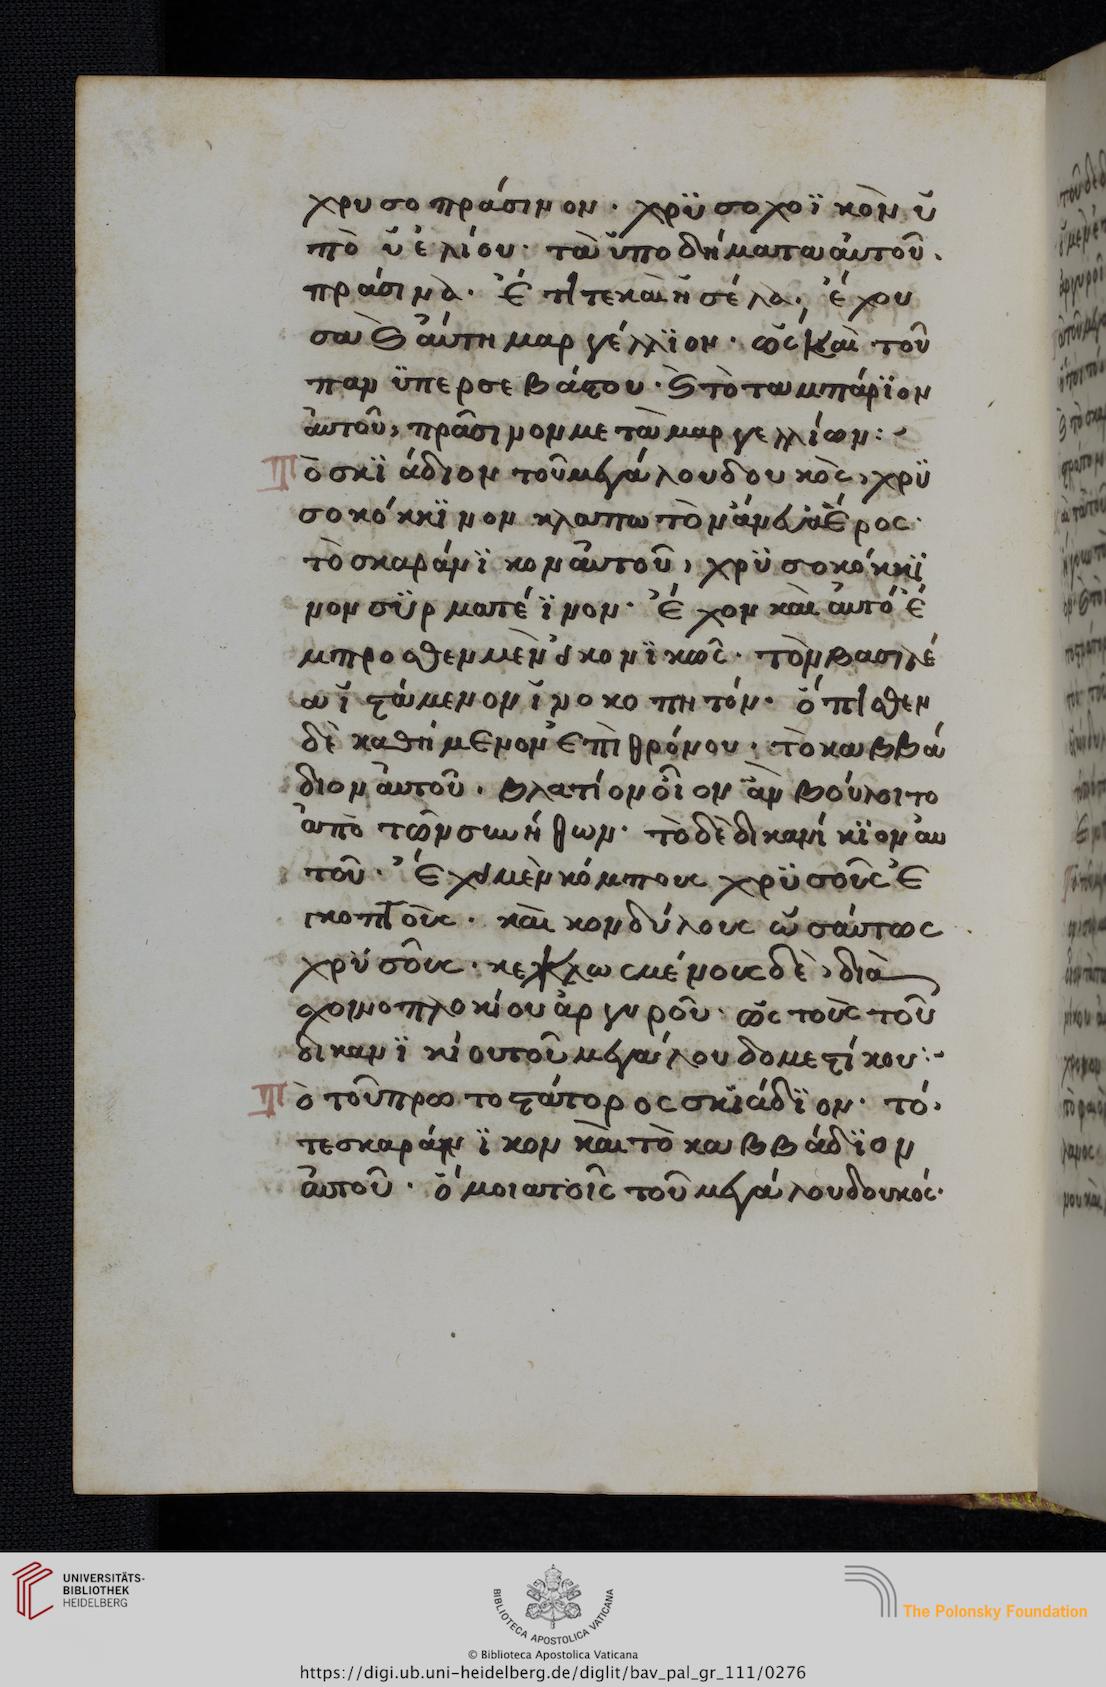 χρυσοπράσινον · χρϋσοχοϊκὸν ὑ
πὸ ὑελίου · τὰ ὑποδήματα αὐτοῦ ·
πράσινα · Ἔτι τε καὶ ἡ σέλα · ἔχου
σα καὶ αὐτὴ μαργέλλϊον · ὡς καὶ τοῦ
πανϋπερσεβάστου · καὶ τὸ ταμπάρϊον
αὐτοῦ, πράσινον μετὰ μαργελλίων :~
Τὸ σκϊάδιον τοῦ μεγάλου δουκὸς, χρϋ
σοκόκκϊνον κλαπωτὸν ἄνευ ἀέρος ·
τὸ σκαράνϊκον αὐτοῦ, χρϋσοκόκκϊ
νον σϋρματέϊνον · Ἔχον καὶ αὐτὸ ἔ
μπροσθεν μὲν εἰκονϊκῶς · τὸν βασιλέ
α ἱστάμενον ἰνοκοπητόν · ὄπισθεν
δὲ καθήμενον ἐπὶ θρόνου · τὸ καββά
διον αὐτοῦ · βλατίον οἷον ἂν βούλοιτο
ἀπὸ τῶν συνήθων · τὸ δὲ δικανίκϊον αὐ
τοῦ · Ἔχει μὲν κόμπους χρϋσοῦς ἐ
σκοπτοὺς · καὶ κονδύλους ὡσαύτως
χρϋσοῦς · κεκλωσμένους δὲ, διὰ
σχοινοπλοκίου ἀργυροῦ · ὡς τοὺς τοῦ
δικανϊκίου τοῦ μεγάλου δομεστίκου :~
Τὸ τοῦ πρωτοστάτορος σκϊάδϊον · τό,
τε σκαράνϊκον καὶ τὸ καββάδϊον
αὐτοῦ · ὅμοια τοῖς τοῦ μεγάλου δουκός ·
UNIVERSITÄTS-
BIBLIOTHEK
HEIDELBERG
BIBLIOTECA APOSTOLICA VATICANA
The Polonsky Foundation
© Biblioteca Apostolica Vaticana
https://digi.ub.uni-heidelberg.de/diglit/bav_pal_gr_111/0276